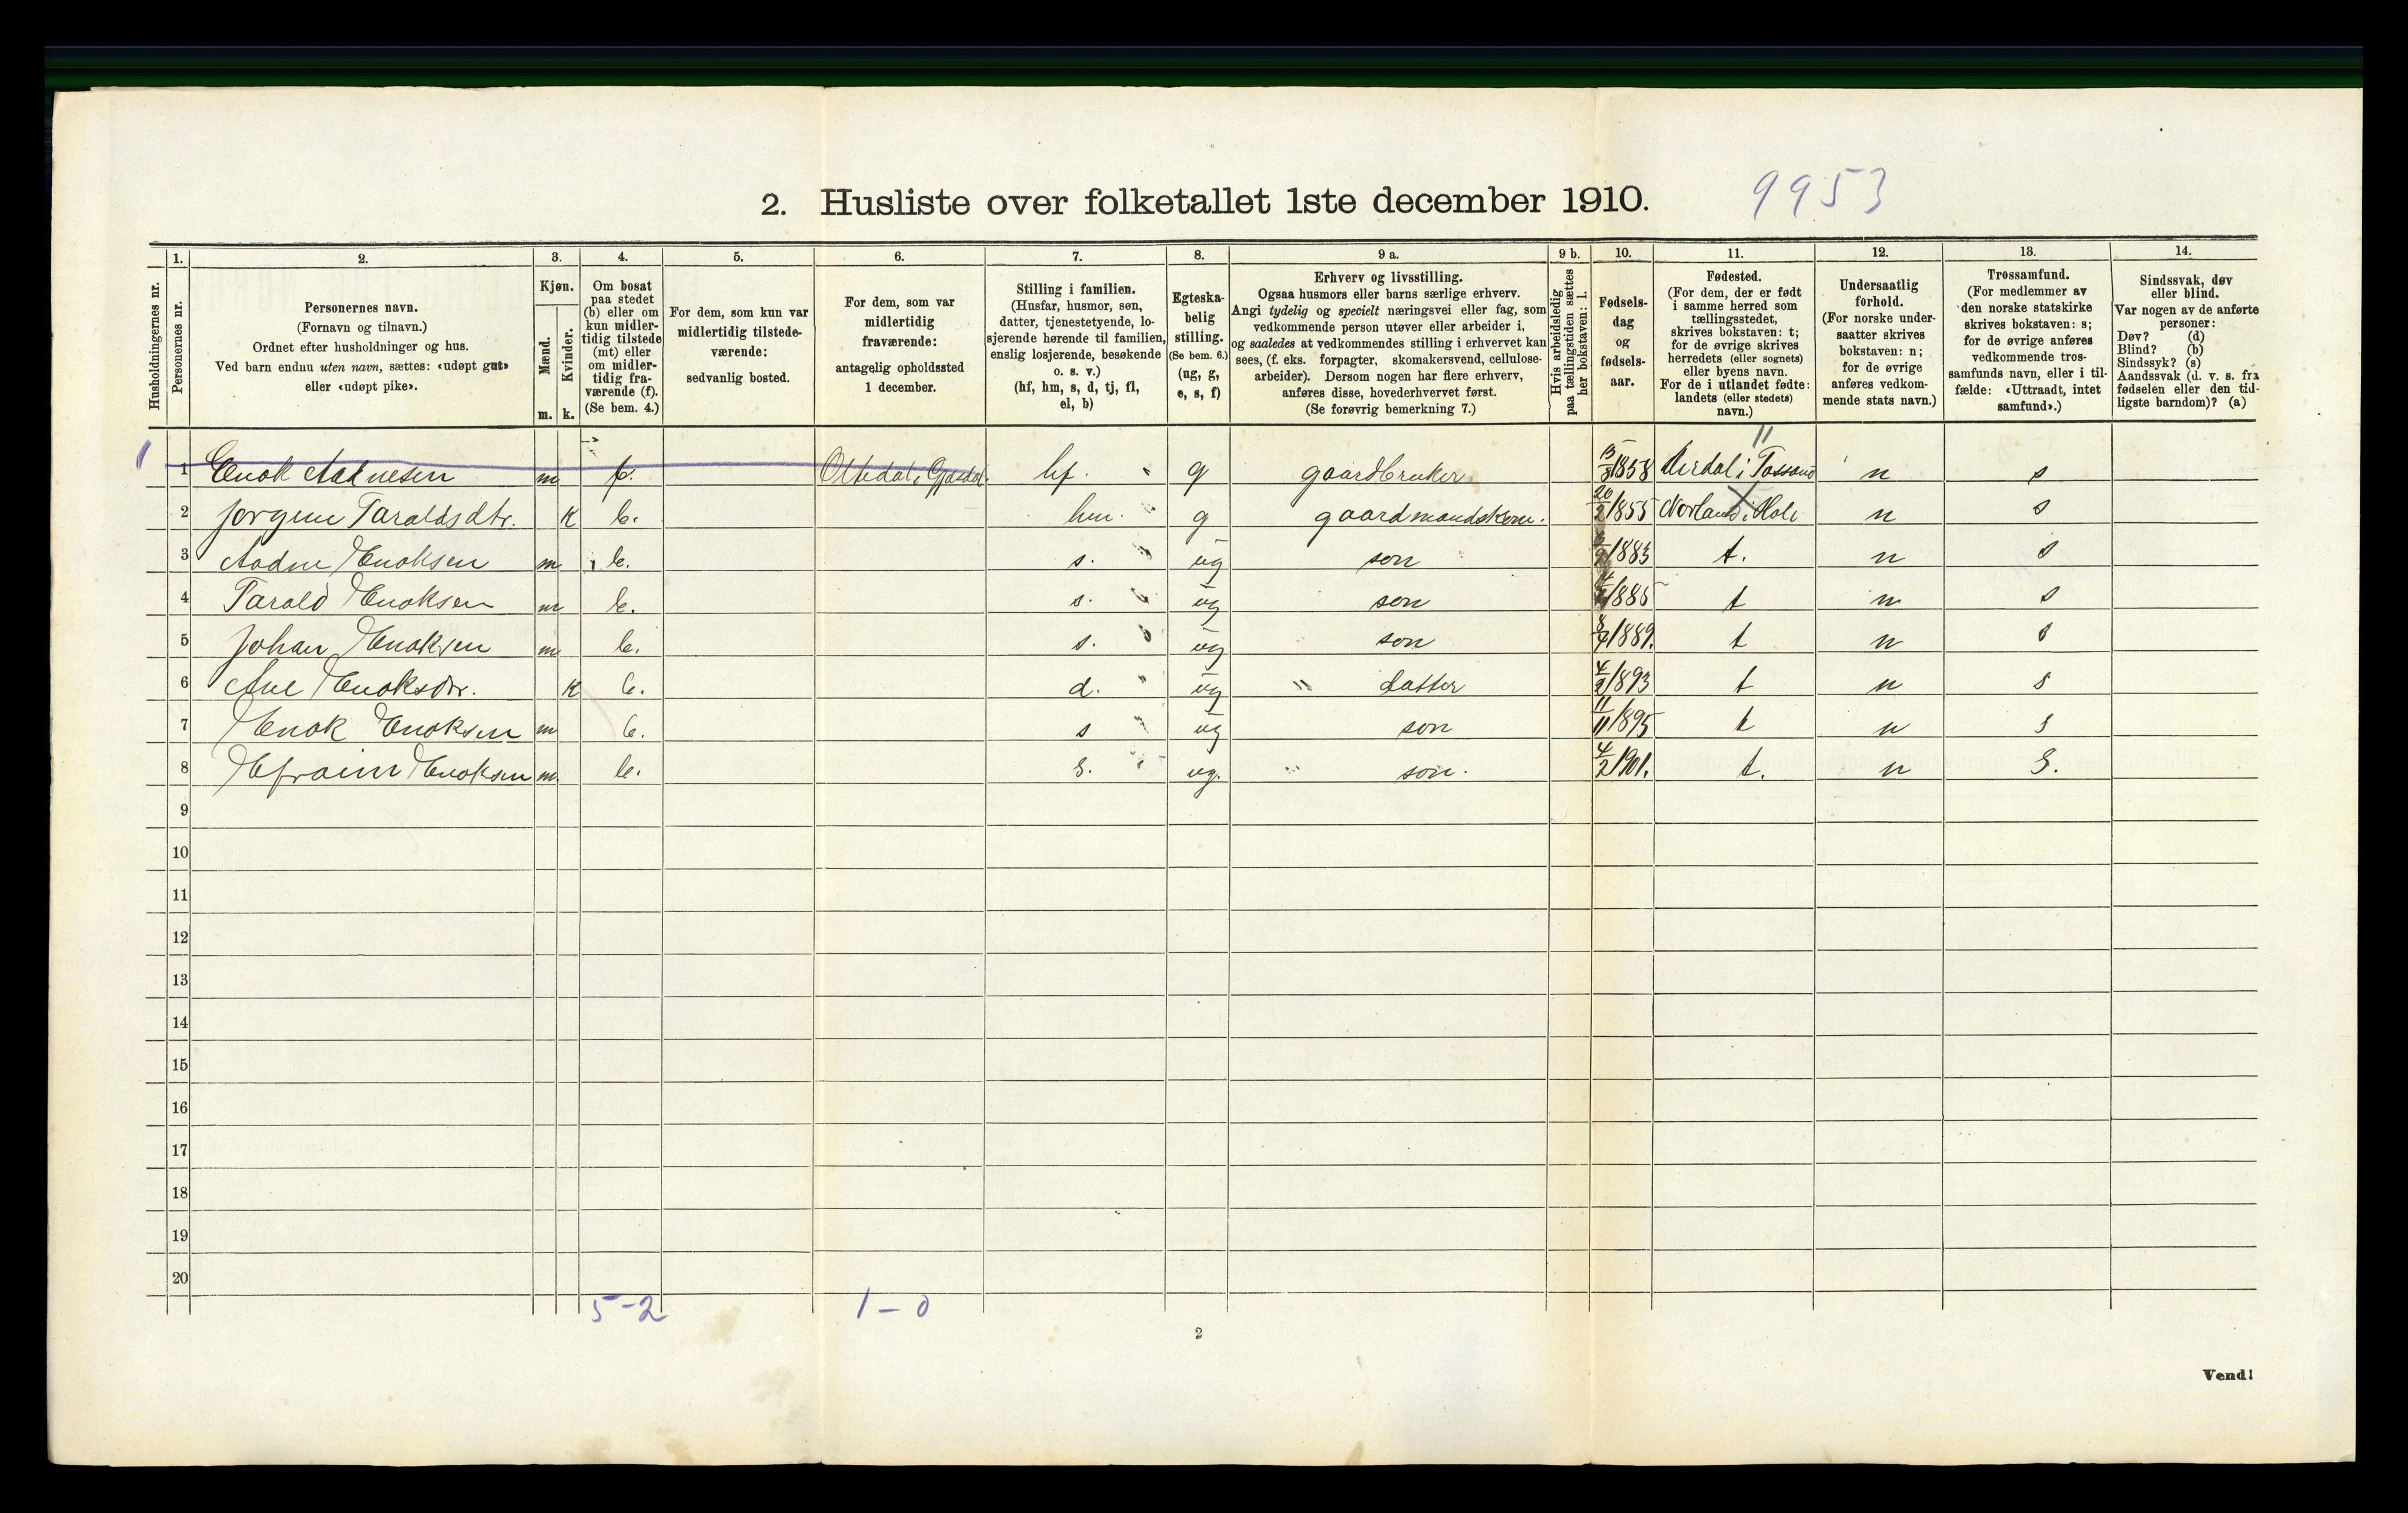 2. Husliste over folketallet 1ste december 1910. 9953
Husholdningernes nr.
1. Personernes nr.
2. Personernes navn.
(Fornavn og tilnavn.)
Ordnet efter husholdninger og hus.
Ved barn endnu uten navn, sættes: «udøpt gut»
eller «udøpt pike».
3. Kjøn.
Mænd. m.
Kvinder. k.
4. Om bosat
paa stedet
(b) eller om
kun midler-
tidig tilstede
(mt) eller
om midler-
tidig fra-
værende (f).
(Se bem. 4.)
5. For dem, som kun var
midlertidig tilstede-
værende:
sedvanlig bosted.
6. For dem, som var
midlertidig
fraværende:
antagelig opholdssted
1 december.
7. Stilling i familien.
(Husfar, husmor, søn,
datter, tjenestetyende, lo-
sjerende hørende til familien,
enslig losjerende, besøkende
o. s. v.)
(hf, hm, s, d, tj, fl,
el, b)
8. Egteska-
belig
stilling.
(Se bem. 6.)
(ug, g,
e, s, f)
9 a. Erhverv og livsstilling.
Ogsaa husmors eller barns særlige erhverv.
Angi tydelig og specielt næringsvei eller fag, som
vedkommende person utøver eller arbeider i,
og saaledes at vedkommendes stilling i erhvervet kan
sees, (f. eks. forpagter, skomakersvend, cellulose-
arbeider). Dersom nogen har flere erhverv,
anføres disse, hovederhvervet først.
(Se forøvrig bemerkning 7.)
9 b. Hvis arbeidsledig
paa tællingstiden sættes
her bokstaven: l.
10. Fødsels-
dag
og
fødsels-
aar.
11. Fødested.
(For dem, der er født
i samme herred som
tællingsstedet,
skrives bokstaven: t;
for de øvrige skrives
herredets (eller sognets)
eller byens navn.
For de i utlandet fødte:
landets (eller stedets)
navn.)
12. Undersaatlig
forhold.
(For norske under-
saatter skrives
bokstaven: n;
for de øvrige
anføres vedkom-
mende stats navn.)
13. Trossamfund.
(For medlemmer av
den norske statskirke
skrives bokstaven: s;
for de øvrige anføres
vedkommende tros-
samfunds navn, eller i til-
fælde: «Uttraadt, intet
samfund».)
14. Sindssvak, døv
eller blind.
Var nogen av de anførte
personer:
Døv? (d)
Blind? (b)
Sindssyk? (s)
Aandssvak (d. v. s. fra
fødselen eller den tid-
ligste barndom)? (a)
1 1 Enok Aadnesen m f. Oltedal i Gjæsdal. hf. g gaardbruker 1858 i n s
2 Jorgine Taraldsdtr. k b. hm. g gaardmandskone. 20/2 1855 Norland i Hole n s
3 Aadne Enoksen m b. s. ug son 1883 t. n s
4 Tarald Enoksen m b. s. ug son t n s
5 Johan Enoksen m b. s. ug son 8/4 1889. t n s
6 Ane Enoksdtr. k b. d. ug " datter 4/2 1893 t n s
7 Enok Enoksen m b. s ug son 11/11 1895 t n s
8 Efraim Enoksen m. b. s. ug. " son. 4/2 1901. t. n s.
9
10
11
12
13
14
15
16
17
18
19
20
5-2 1-0
2
Vend!